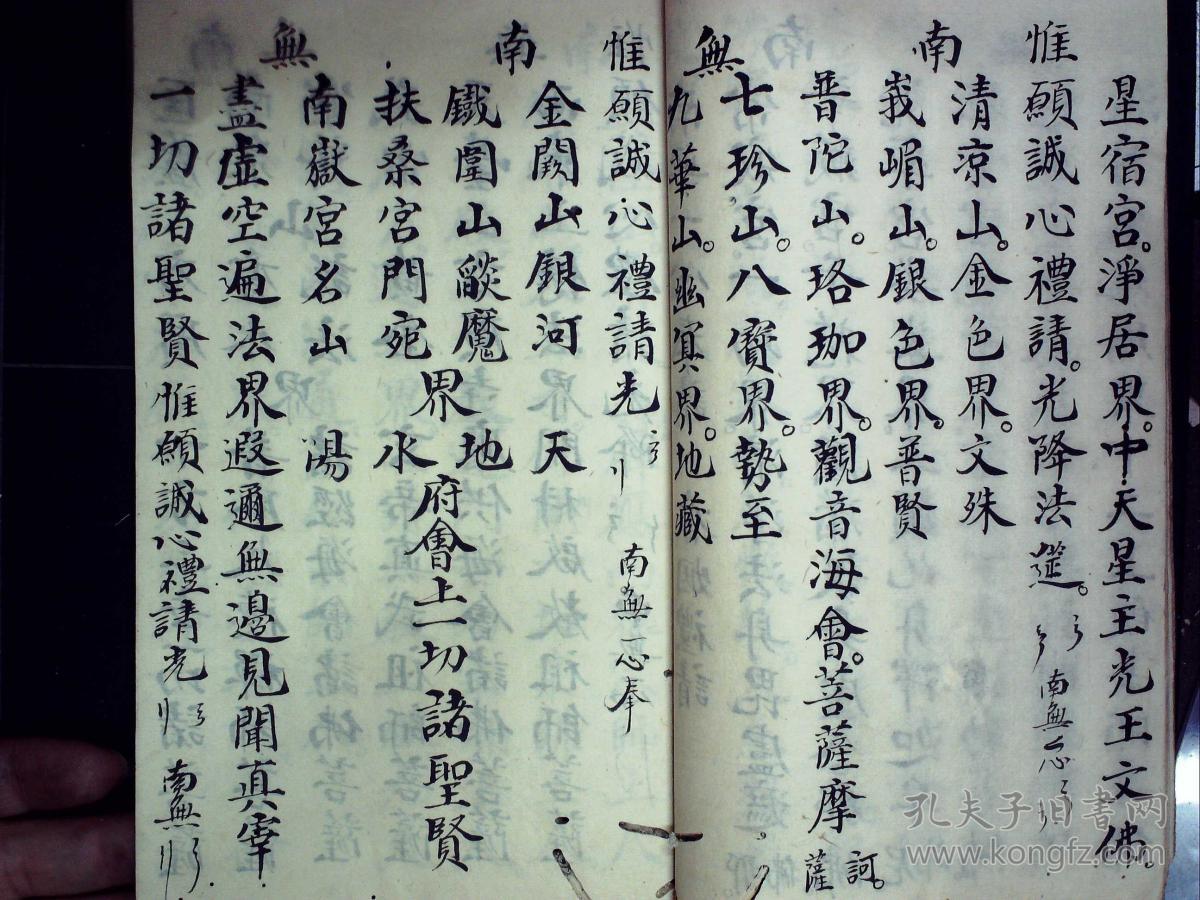 星宿宮。淨居界。中天星主光王文佛。
惟願誠心禮請。光降法筵。 南無一心
南
清涼山。金色界。文殊
峩嵋山。銀色界。普賢
普陀山。珞珈界。觀音海會。菩薩摩訶。薩
七珍山。八寶界。勢至
無
九華山。幽冥界。地藏
惟願誠心禮請光 南無一心奉
南
金闕山銀河界天
鐵圍山燄魔界地
扶桑宮門宛 水
府會上一切諸聖賢
南嶽宮名山 陽
無
盡虛空遍法界遐邇無邊見聞真宰
一切諸聖賢惟願誠心禮請光 南無
孔夫子旧书网
www.kongfz.com